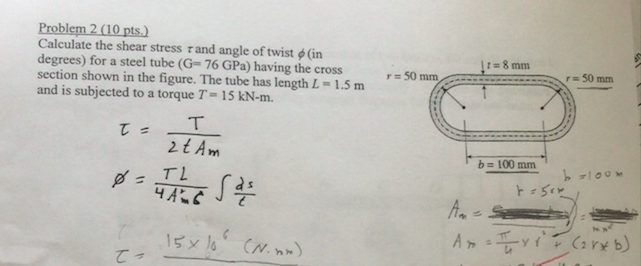 Problem 2 (10 pts.)
Calculate the shear stress τ and angle of twist ϕ (in
degrees) for a steel tube (G= 76 GPa) having the cross
section shown in the figure. The tube has length L = 1.5 m
and is subjected to a torque T = 15 kN-m.
t = 8 mm
r = 50 mm
r = 50 mm
b = 100 mm
τ = T / 2tAm
ϕ = TL / 4Am²G ∫ ds/t
b = 100 m
r = 50
Am =
Am = π/4 × r² + (2r*b)
τ = 15×10⁶ (N.mm)